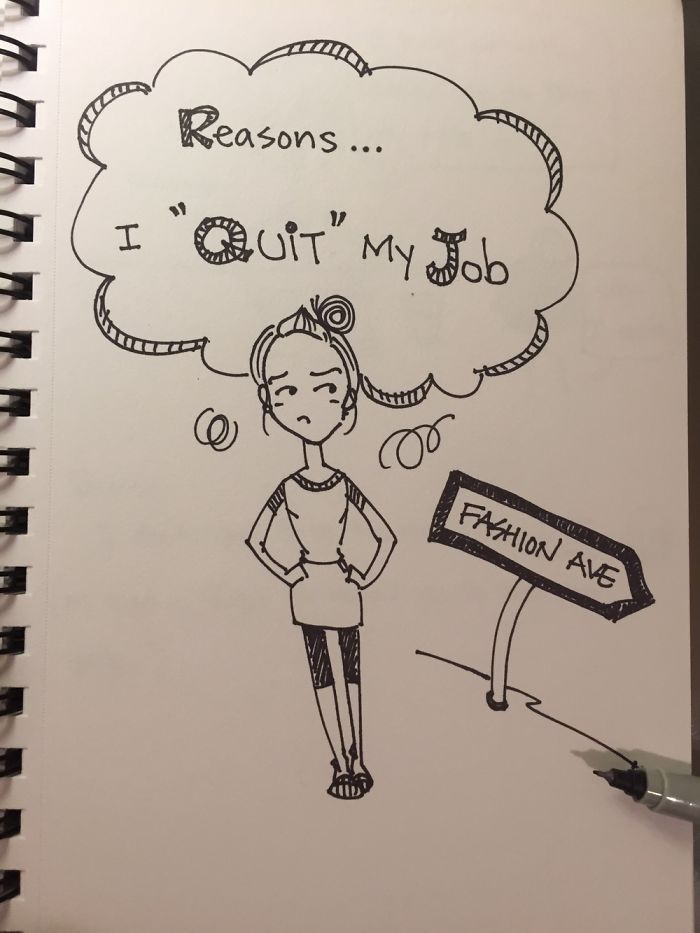 Reasons...
I "QUiT" My Job
FASHION AVE